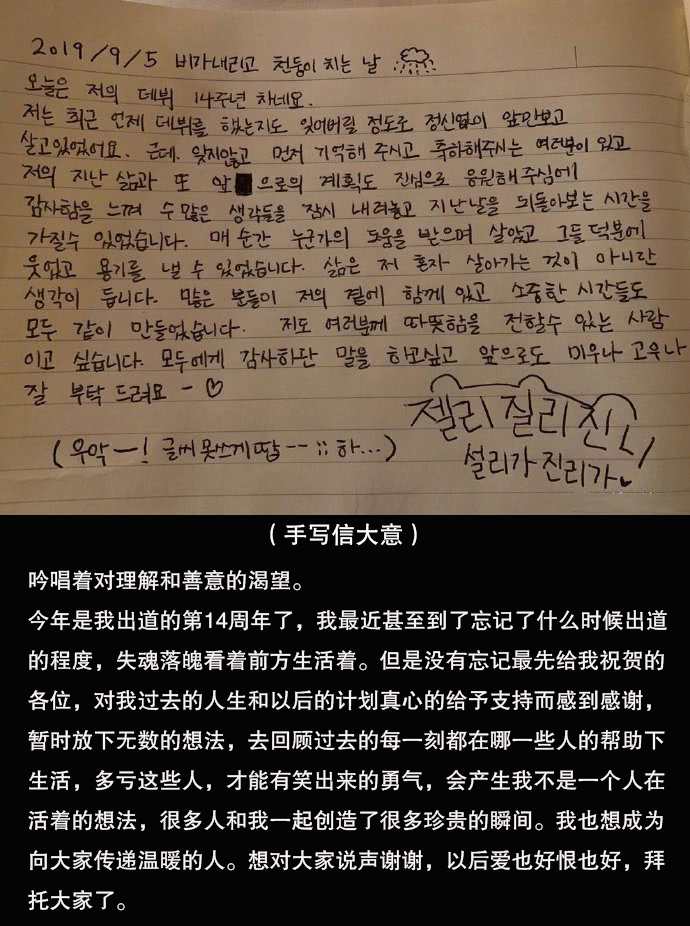 2019/9/5 비가내리고 천둥이 치는 날
오늘은 저의 데뷔 14주년 차네요.
저는 최근 언제 데뷔를 했는지도 잊어버릴 정도로 정신없이 앞만보고
살고있었어요. 근데. 잊지않고 먼저 기억해 주시고 축하해주시는 여러분이 있고
저의 지난 삶과 또 앞으로의 계획도 진심으로 응원해 주심에
감사함을 느껴 수 많은 생각들을 잠시 내려놓고 지난날을 뒤돌아보는 시간을
가질수 있었습니다. 매 순간 누군가의 도움을 받으며 살았고 그들 덕분에
웃었고 용기를 낼 수 있었습니다. 삶은 저 혼자 살아가는 것이 아니란
생각이 듭니다. 많은 분들이 저의 곁에 함께 있고 소중한 시간들도
모두 같이 만들었습니다. 저도 여러분께 따뜻함을 전할수 있는 사람
이고 싶습니다. 모두에게 감사하단 말을 하고싶고 앞으로도 미우나 고우나
잘 부탁 드려요 - ♡
젤리 질리 진
(우악ー! 글씨 못쓰게땁 -- ;; 하...)
설리가 진리가
(手写信大意)
吟唱着对理解和善意的渴望。
今年是我出道的第14周年了，我最近甚至到了忘记了什么时候出道
的程度，失魂落魄看着前方生活着。但是没有忘记最先给我祝贺的
各位，对我过去的人生和以后的计划真心的给予支持而感到感谢，
暂时放下无数的想法，去回顾过去的每一刻都在哪一些人的帮助下
生活，多亏这些人，才能有笑出来的勇气，会产生我不是一个人在
活着的想法，很多人和我一起创造了很多珍贵的瞬间。我也想成为
向大家传递温暖的人。想对大家说声谢谢，以后爱也好恨也好，拜
托大家了。